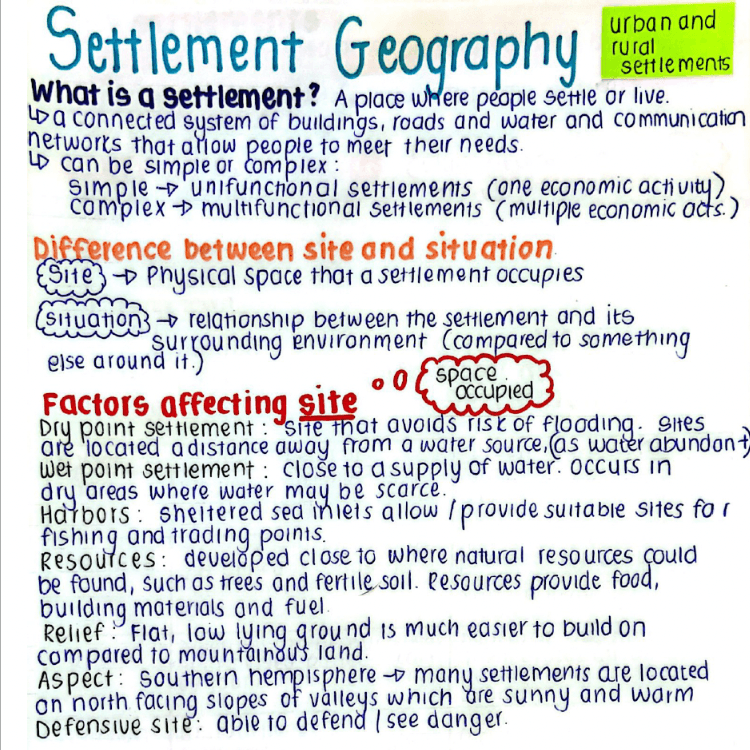 Settlement Geography
urban and
rural
settlements
What is a settlement? A place where people settle or live.
↳ a connected system of buildings, roads and water and communication
networks that allow people to meet their needs.
↳ can be simple or complex:
simple → unifunctional settlements (one economic activity)
complex → multifunctional settlements (multiple economic acts.)
Difference between site and situation.
Site → Physical space that a settlement occupies
situation → relationship between the settlement and its
surrounding environment (compared to something
else around it.)
Factors affecting site
space
occupied
Dry point settlement: site that avoids risk of flooding. sites
are located a distance away from a water source, (as water abundant)
Wet point settlement: close to a supply of water. occurs in
dry areas where water may be scarce.
Harbors: sheltered sea inlets allow / provide suitable sites for
fishing and trading points.
Resources: developed close to where natural resources could
be found, such as trees and fertile soil. Resources provide food,
building materials and fuel.
Relief: Flat, low lying ground is much easier to build on
compared to mountainous land.
Aspect: southern hempisphere → many settlements are located
on north facing slopes of valleys which are sunny and warm
Defensive site: able to defend / see danger.